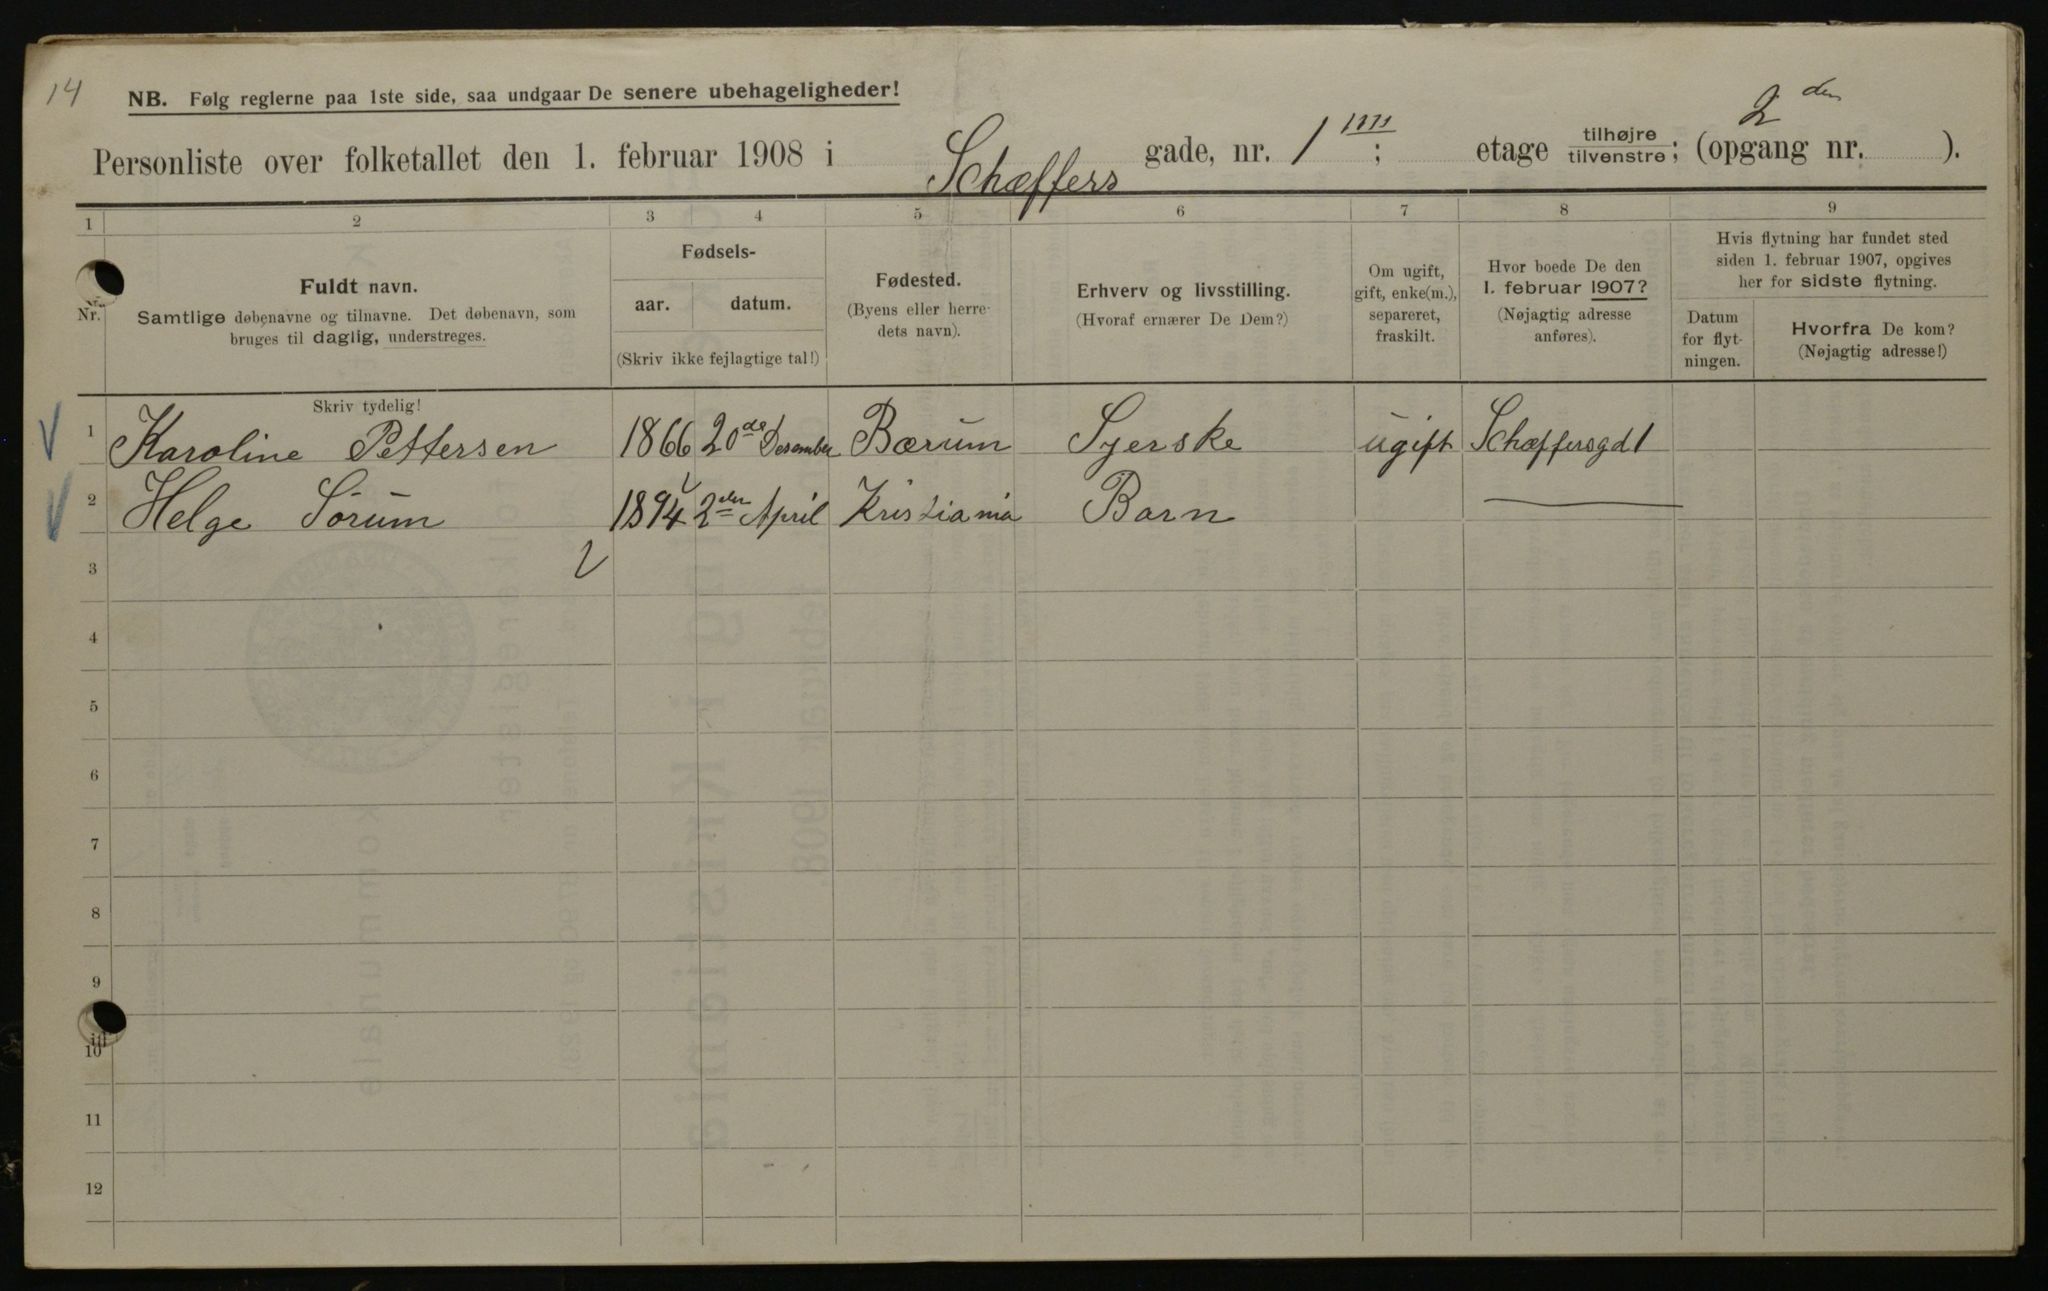 14
NB. Følg reglerne paa 1ste side, saa undgaar De senere ubehageligheder!
Personliste over folketallet den 1. februar 1908 i Schæffers gade, nr. 1 ; etage tilhøjre tilvenstre; (opgang nr. 2 den ).
1 2 3 4 5 6 7 8 9
Nr.
Fuldt navn.
Samtlige døbenavne og tilnavne. Det døbenavn, som
bruges til daglig, understreges.
Fødsels-
aar. datum.
(Skriv ikke fejlagtige tal!)
Fødested.
(Byens eller herre-
dets navn).
Erhverv og livsstilling.
(Hvoraf ernærer De Dem?)
Om ugift,
gift, enke(m.),
separeret,
fraskilt.
Hvor boede De den
1. februar 1907?
(Nøjagtig adresse
anføres).
Hvis flytning har fundet sted
siden 1. februar 1907, opgives
her for sidste flytning.
Datum
for flyt-
ningen.
Hvorfra De kom?
(Nøjagtig adresse!)
Skriv tydelig!
1 Karoline Pettersen 1866 20de Desember Bærum Syerske ugift Schæffersgd 1
2 Helge Sörum 1894 2den April Kristiania Barn
3
4
5
6
7
8
9
10
11
12